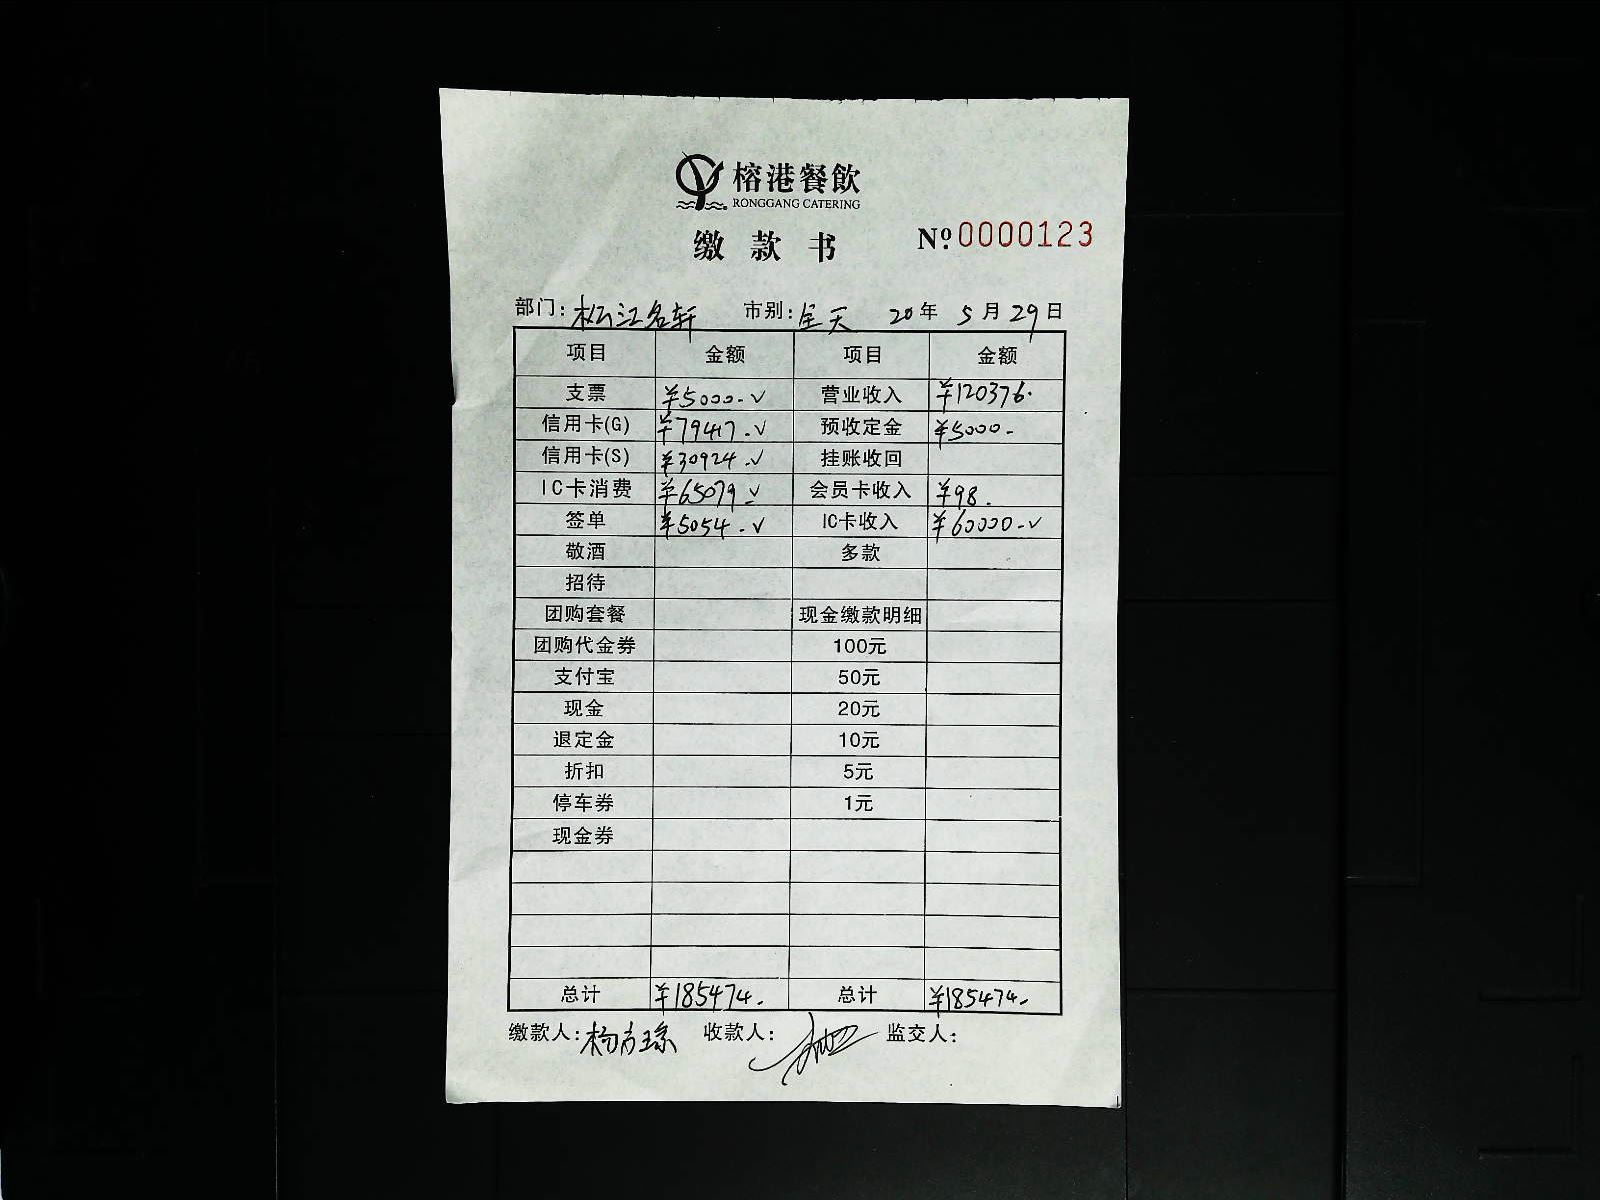 榕港餐飲
RONGGANG CATERING
缴款书 Nº 0000123
部门: 松江名轩 市别: 全天 20年 5月29日
项目 金额 项目 金额
支票 ¥5000.-√ 营业收入 ¥120376.
信用卡(G) ¥79417.√ 预收定金 ¥5000.-
信用卡(S) ¥30924.√ 挂账收回
IC卡消费 ¥65079.√ 会员卡收入 ¥98.
签单 ¥5054.-√ IC卡收入 ¥60000.-√
敬酒 多款
招待
团购套餐 现金缴款明细
团购代金券 100元
支付宝 50元
现金 20元
退定金 10元
折扣 5元
停车券 1元
现金券
总计 ¥185474. 总计 ¥185474.
缴款人: 杨方琼 收款人: 监交人: